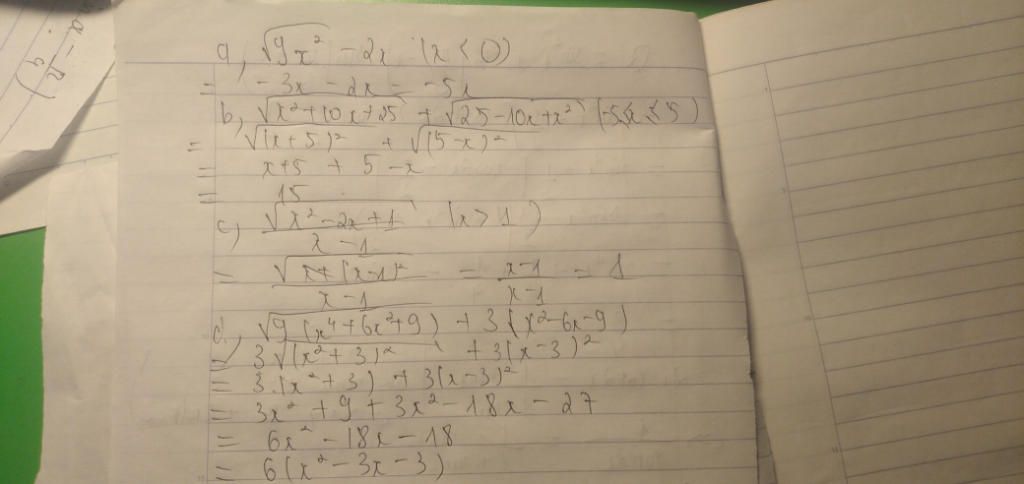 a, √9x² - 2x (x < 0)
= -3x - 2x = -5x
b, √x²+10x+25 + √25-10x+x² (-5≤x≤5)
= √(x+5)² + √(5-x)²
= x+5 + 5-x
= 15
c) √x²-2x+1 / x-1 (x > 1)
= √(x-1)² / x-1 = x-1 / x-1 = 1
d, √9(x⁴+6x²+9) + 3(x²-6x-9)
= 3√(x²+3)² + 3(x-3)²
= 3.(x²+3) + 3(x-3)²
= 3x² + 9 + 3x² - 18x - 27
= 6x² - 18x - 18
= 6(x² - 3x - 3)